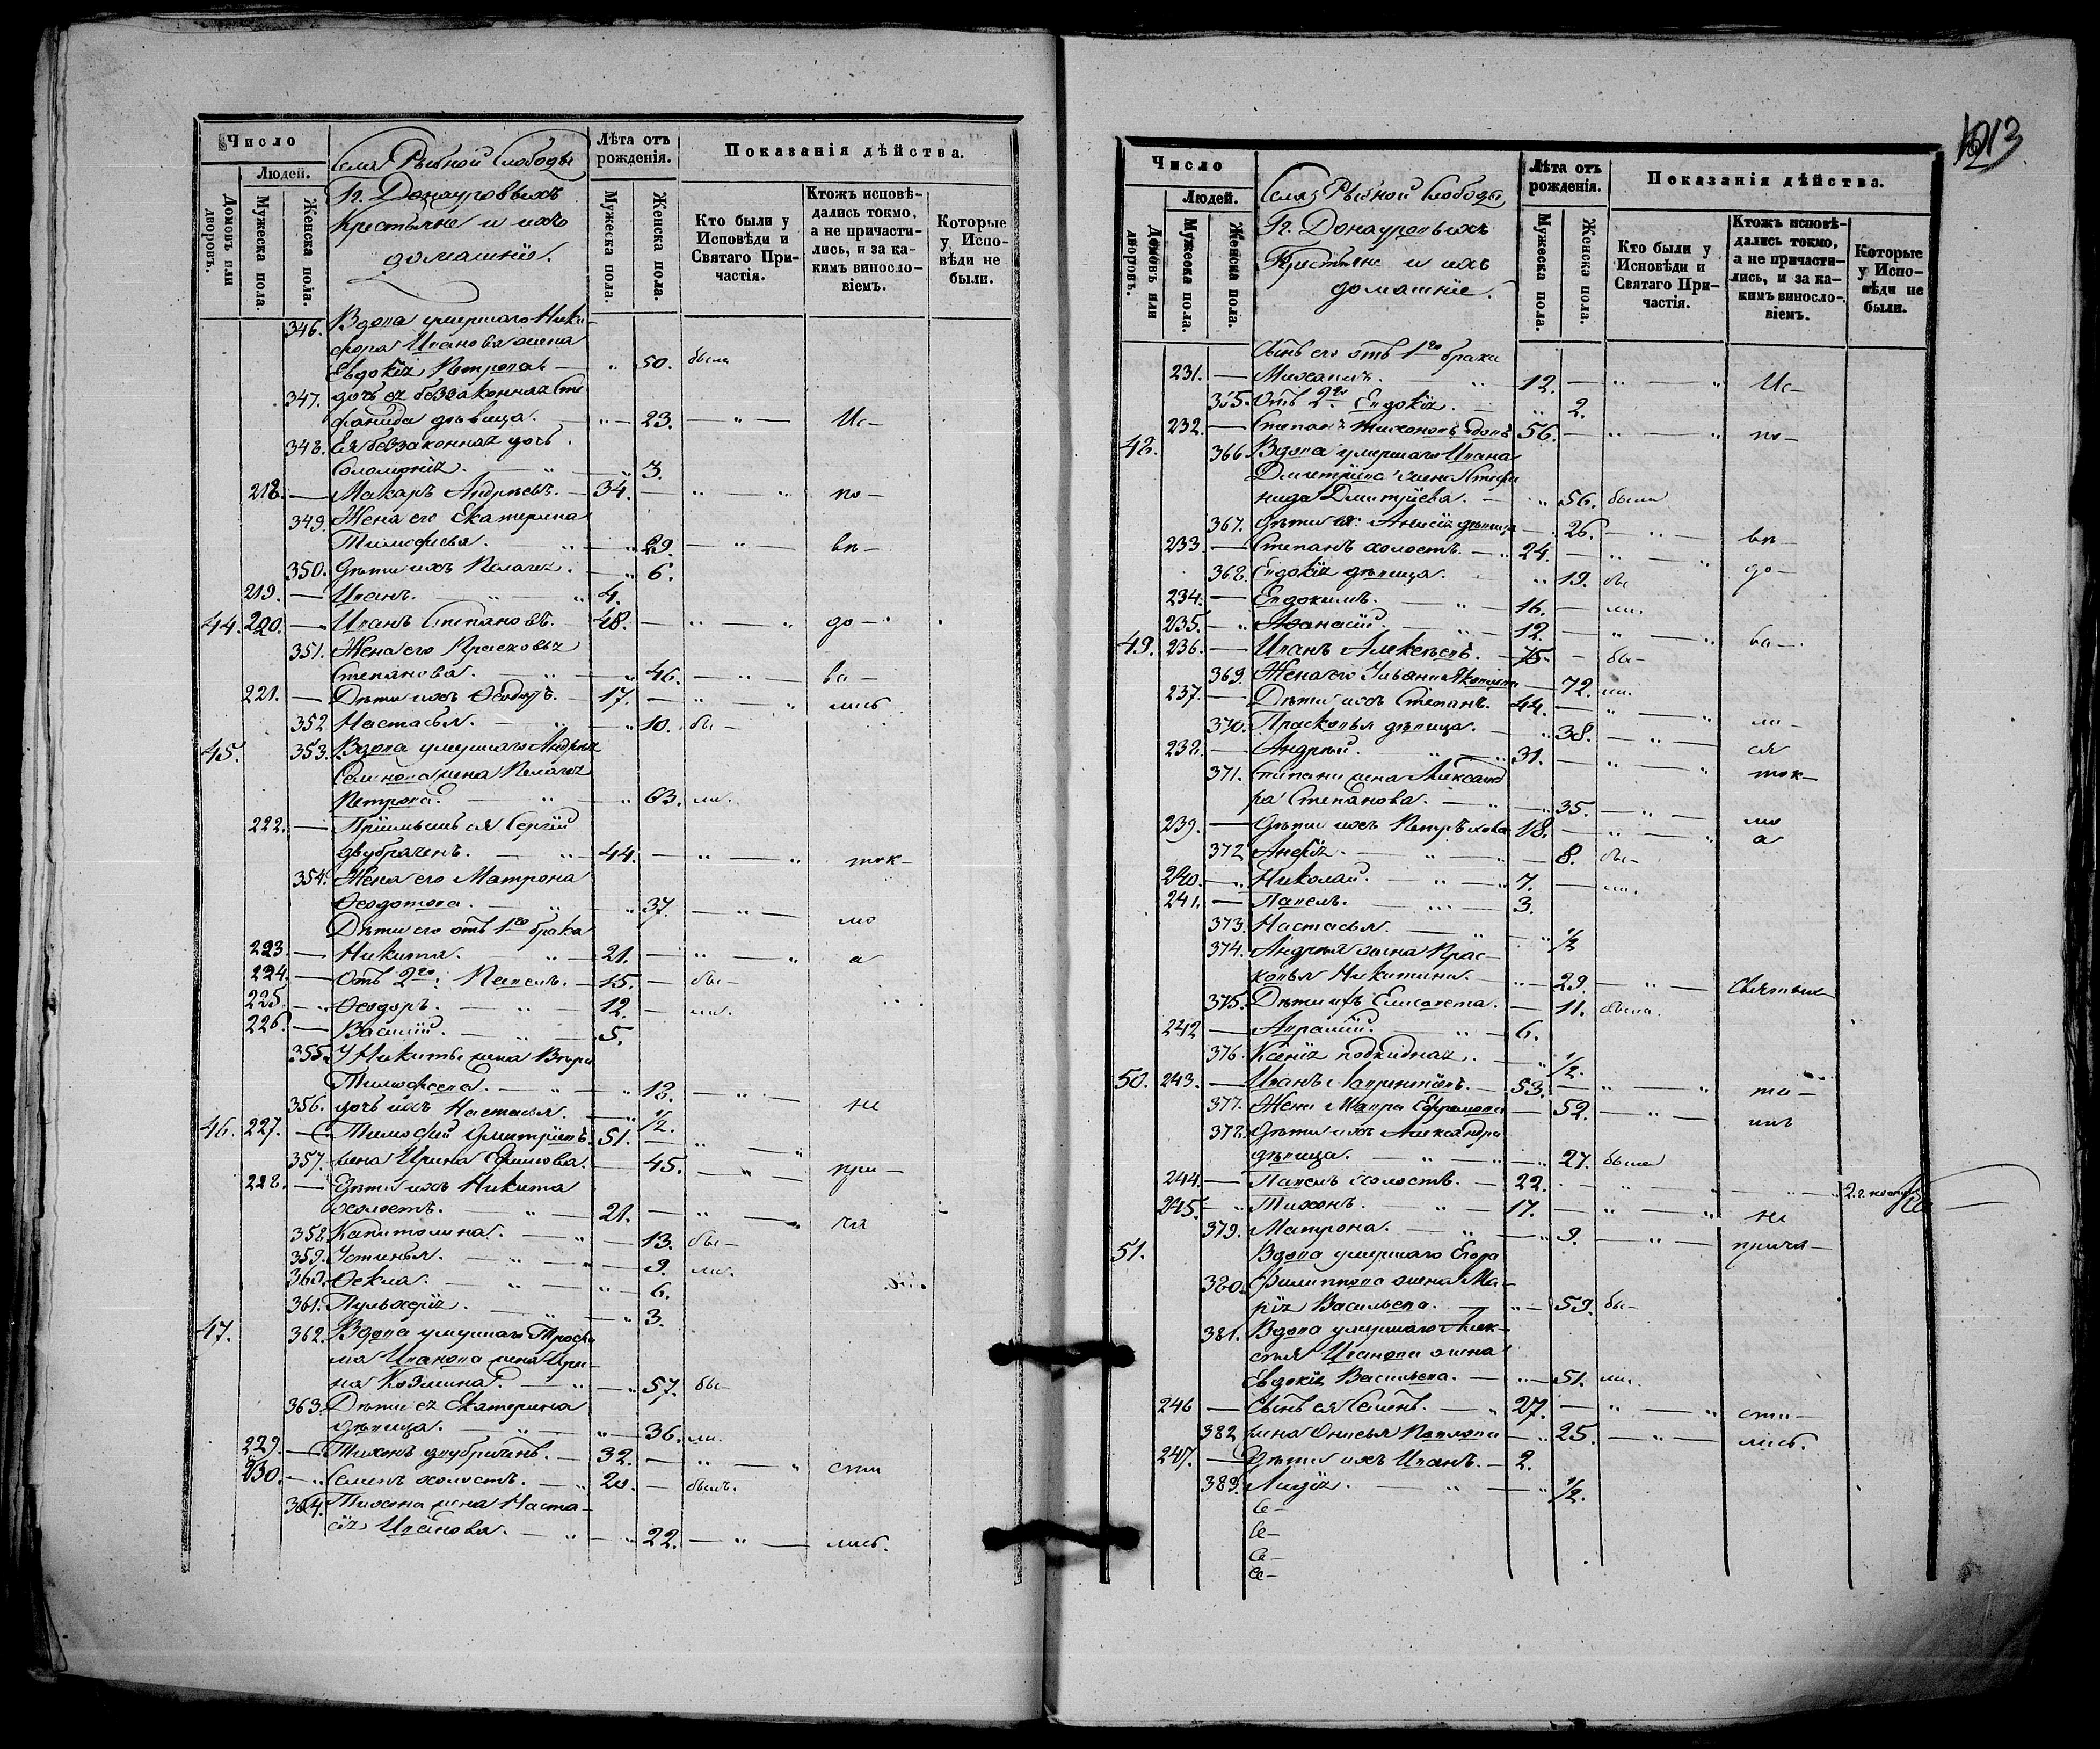 Число
Людей.
Домовъ или дворовъ.
Мужеска пола.
Женска пола.
Села Рыбной Слободы
Гг. Донауровыхъ
Крестьяне и ихъ
домашніе.
Лѣта отъ рожденія.
Мужеска пола.
Женска пола.
Показанія дѣйства.
Кто были у Исповѣди и Святаго Причастія.
Ктожъ исповѣдались токмо, а не причастились, и за какимъ винословіемъ.
Которые у Исповѣди не были.
346. Вдова умершаго Ники-
фора Иванова жена
Евдокія Петрова — " 50. была
347. дочь ея беззаконная Сте
фанида дѣвица. — " — 23. — " — Ис-
348. Ея беззаконная дочь
Соломонія. — " — 3.
218. — Макаръ Андреевъ. — 34. — " — " по-
349. Жена его Екатерина
Тимофеева. — " — 29. — " — вѣ-
350. Дѣти ихъ Пелагея. — " 6.
219. — Иванъ. — " — " 4.
44. 220. — Иванъ Степановъ. — 48. — " — " до-
351. Жена его Прасковья
Степанова. — " — 46. — " — ва-
221. — Дѣти ихъ Ѳедоръ. — 17. — " — " лись
352. Настасья. — " — 10. бы-
45. 353. Вдова умершаго Андрея
Семенова жена Пелагея
Петрова. — " — " 63. ли.
222. — Пріимышъ ея Сергій
двубраченъ. — " — 44. — " — " ток-
354. Жена его Матрона
Ѳедотова. — " — 37. — " — мо
Дѣти его отъ 1го брака
223. — Никита. " — 21. — " — " а
224. — Отъ 2го: Павелъ. — 15. — бы-
225. — Ѳеодоръ. — " — 12. — ли.
226. — Василій. — " — 5.
355. У Никиты жена Вѣра
Тимофеева. — " — " 18. — " — не
356. дочь ихъ Настасья. — " 1/2.
46. 227. — Тимофей Дмитріевъ. 51. — " — "
357. жена Ирина Ефимова. — 45. — " — при-
228. — Дѣти ихъ Никита
холостъ. — " — 21. — " — " ча
358. Капитолина. — " — 13. бы-
359. Устинья. — " — 9. ли.
360. Ѳекла. — " — " 6.
361. Пульхерія. — " — " 3.
47. 362. Вдова умершаго Трофи
ма Иванова жена Ири-
на Козмина. — " — 57. бы-
363. Дѣти ея Екатерина
дѣвица. — " — " — 36. ли.
229. — Тихонъ двубраченъ. — 32. — " — " сти
230. — Семенъ холостъ. — 20. — былъ.
364. Тихона жена Наста-
сія Иванова. — " — 22. — " — лись.
1213
Число
Людей.
Домовъ или дворовъ.
Мужеска пола.
Женска пола.
Села Рыбной Слободы
Гг. Донауровыхъ
Крестьяне и ихъ
домашніе.
Лѣта отъ рожденія.
Мужеска пола.
Женска пола.
Показанія дѣйства.
Кто были у Исповѣди и Святаго Причастія.
Ктожъ исповѣдались токмо, а не причастились, и за какимъ винословіемъ.
Которые у Исповѣди не были.
Сынъ его отъ 1го брака
231. — Михаилъ. — " 12. — " — " Ис-
365. Отъ 2го Евдокія. — " 2.
232. — Степанъ Тихоновъ вдовъ 56. — " — " по-
48. 366. Вдова умершаго Ивана
Дмитріева жена Стефа
нида Дмитріева. — " 56. была
367. дѣти ея: Анисія дѣвица — 26. — " — вѣ-
233. — Степанъ холостъ. — " 24. — " — " до-
368. Евдокія дѣвица. — " 19. бы
234. — Евдокимъ. — " — 16. — ли.
235. — " Аѳанасій. — " — 12. — " — " ва-
49. 236. — Иванъ Алексѣевъ. — 75. — бы-
369. Жена его Ульяна Яковлева — 72. ли.
237. — Дѣти ихъ Степанъ. 44. — " — " ли-
370. Прасковья дѣвица. — " 38. — " — ся
238. — Андрей. " — " 31. — " — " ток-
371. Степана жена Александ
ра Степанова. — " — " 35. — " — мо
239. — Дѣти ихъ Петръ холо 18. — " — " а
372. Анисія. — " — " — 8. бы-
240. — " Николай. — " — 7. — ли.
241. — Павелъ. — " — 3.
373. Настасья. — " — " 1/2
374. Андрея жена Прас-
ковья Никитина. — " — 29. — " — Святыхъ
375. Дѣти ихъ Елисавета. — 11. была.
242 — Авраамій. — " — 6.
376. Ксенія подкидная. — " 1/2.
50. 243. — Иванъ Лаврентіевъ. — 53. — " — " та-
377. Жена Мавра Ефремова — 52. — " — инъ
378. Дѣти ихъ Александра
дѣвица. — " — " — 27. была
244. — Павелъ холостъ. — 22. — " — " — " — "
245. — " Тихонъ. — " — 17. — " — " не
379. Матрона. — " — " 9. — " — прича-
51. Вдова умершаго Егора
380. Филиппова жена Ма-
рія Васильева. — " — 59. бы-
381. Вдова умершаго Алек-
сѣя Иванова жена
Евдокія Васильева. — " — 51. ли.
246 — Сынъ ея Семенъ. — " 27. — " — " сти-
382. жена Онисья Павлова — " 25. — " — лись.
247. — Дѣти ихъ Иванъ. — 2.
383. Лидія. — " — " 1/2.